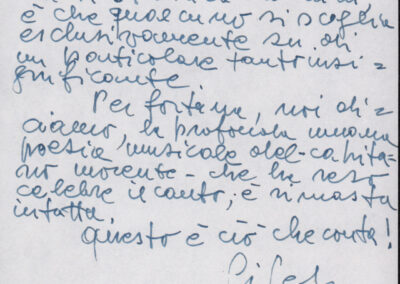 è che qualcuno si scaglia
esclusivamente su di
un particolare tanto insi=
gnificante.
Per fortuna, noi di=
ciamo, la profonda umana
poesia musicale del capita=
no morente - che ha reso
celebre il canto, è rimasta
intatta.
Questo è ciò che conta!